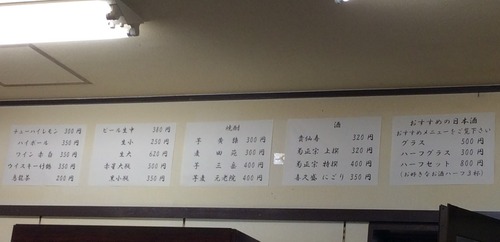 チューハイレモン 300円
ハイボール 350円
ワイン 赤 白 350円
ウイスキー 350円
烏龍茶 250円
ビール 生中 380円
生小 250円
生大 620円
大瓶 500円
黒小瓶 350円
焼酎
芋 黄麹 300円
麦 田苑 300円
芋 三岳 400円
芋麦 元老院 400円
酒
雲仙寿 320円
菊正宗 上撰 320円
菊正宗 特撰 400円
喜久盛 にごり 350円
おすすめの日本酒
おすすめメニューをご覧下さい
グラス 500円
ハーフグラス 300円
ハーフセット 800円
(お好きなお酒ハーフ3杯)